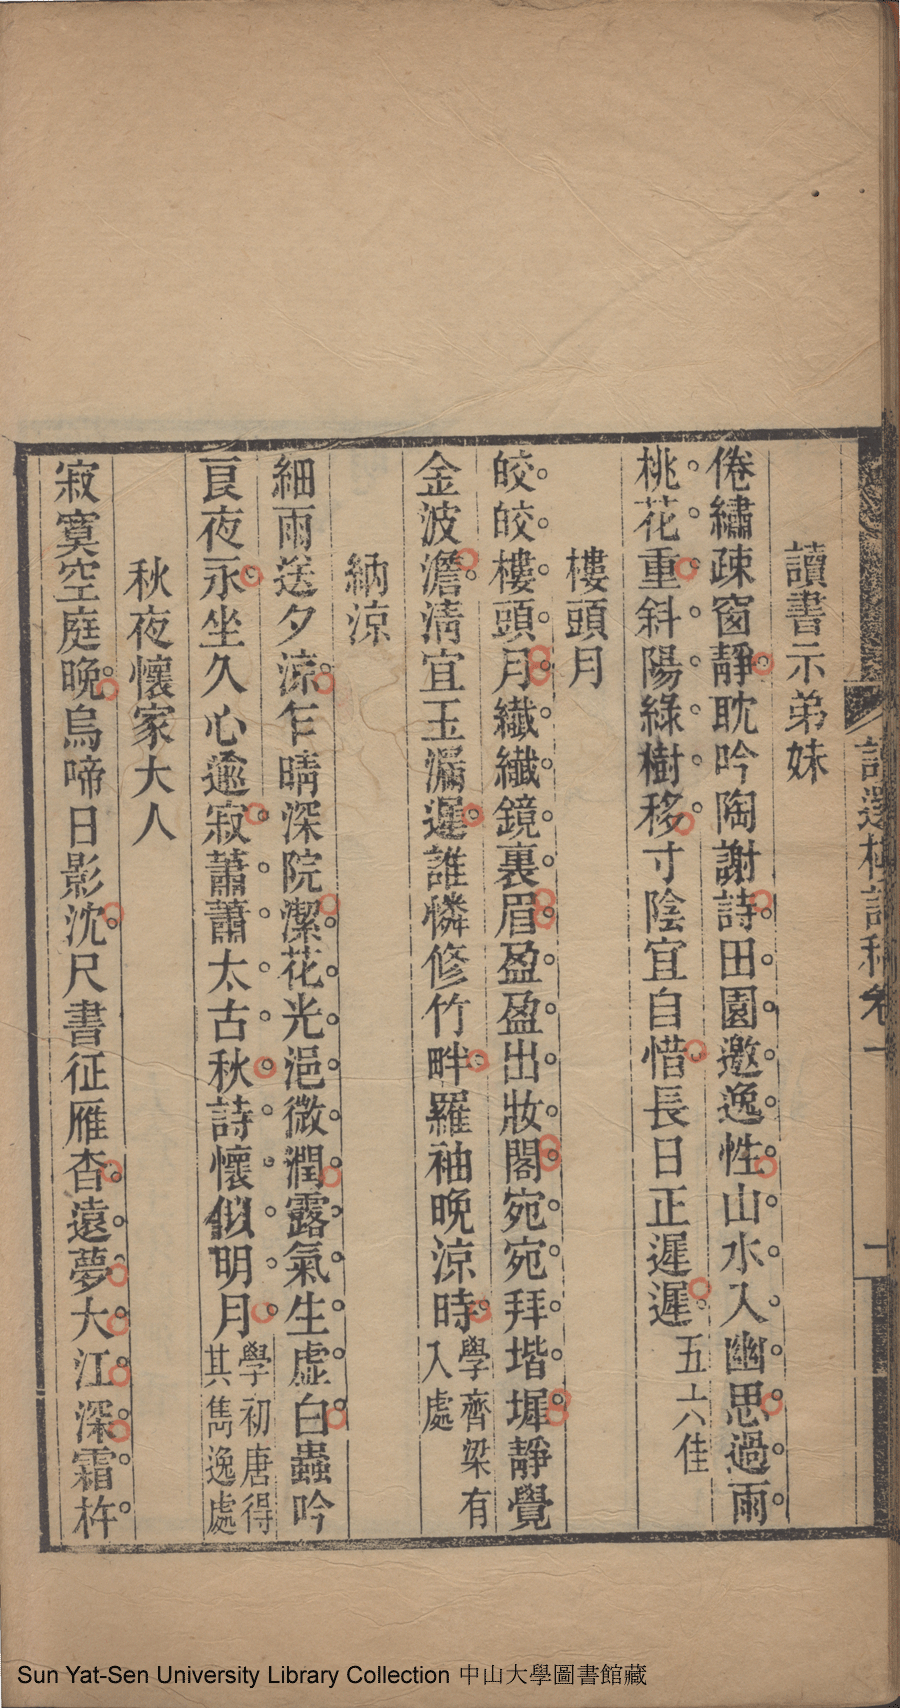 讀選樓詩稿卷一
一
讀書示弟妹
倦繡疎窗靜耽吟陶謝詩田園邀逸性山水入幽思過雨
桃花重斜陽綠樹移寸陰宜自惜長日正遲遲五六佳
樓頭月
皎皎樓頭月纖纖鏡裏眉盈盈出妝閣宛宛拜堦墀靜覺
金波澹清宜玉漏遲誰憐修竹畔羅袖晚涼時學齊梁有入處
納涼
細雨送夕涼乍晴深院潔花光浥微潤露氣生虛白蟲吟
良夜永坐久心逾寂蕭蕭太古秋詩懷似明月學初唐得其雋逸處
秋夜懷家大人
寂寞空庭晚烏啼日影沈尺書征雁杳遠夢大江深霜杵
Sun Yat-Sen University Library Collection 中山大學圖書館藏